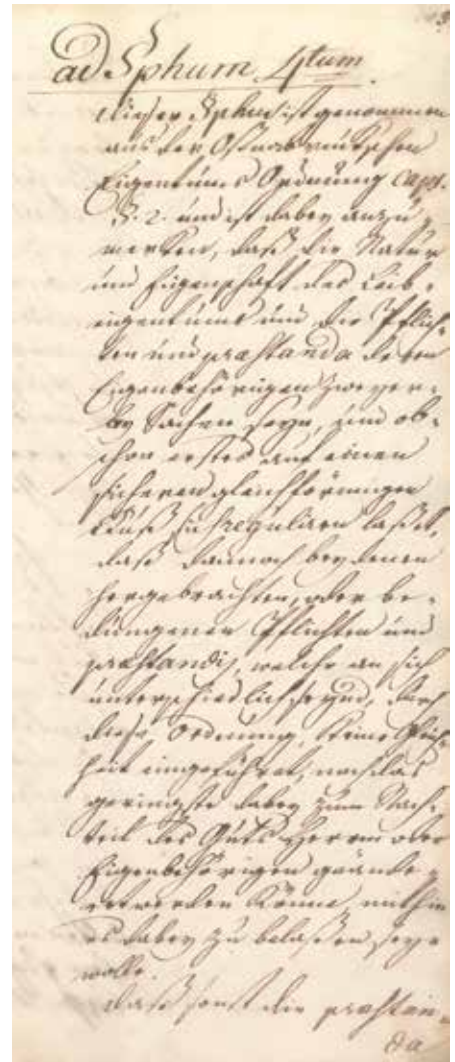 ad Sphum 4tum.
dieser Sphus ist genommen
aus der Oßnabrückschen
Eigentums Ordnung cap. 1.
§. 2. und ist dabey anzu-
merken, daß die Natur
und Eigenschaft des Leib-
eigentums und die Pflich-
ten und praestanda deren
Eigenbehörigen zweyer-
ley Sachen seyn, und ob-
schon erstes auf einen
sicheren gleichförmigen
Fuß sich reguliren laßet,
daß dannoch bey denen
hergebrachten, oder be-
dungenen Pflichten und
praestandis, welche an sich
unterschiedlich seynd, durch
diese Ordnung, keine Gleich-
heit eingeführet, noch das
geringste dabey zum Nach-
teil des Guts Herrn oder
Eigenbehörigen geände-
ret werden könne, mithin
es dabey zu belaßen seyn
wolle.
daß sonst die praestan-
da